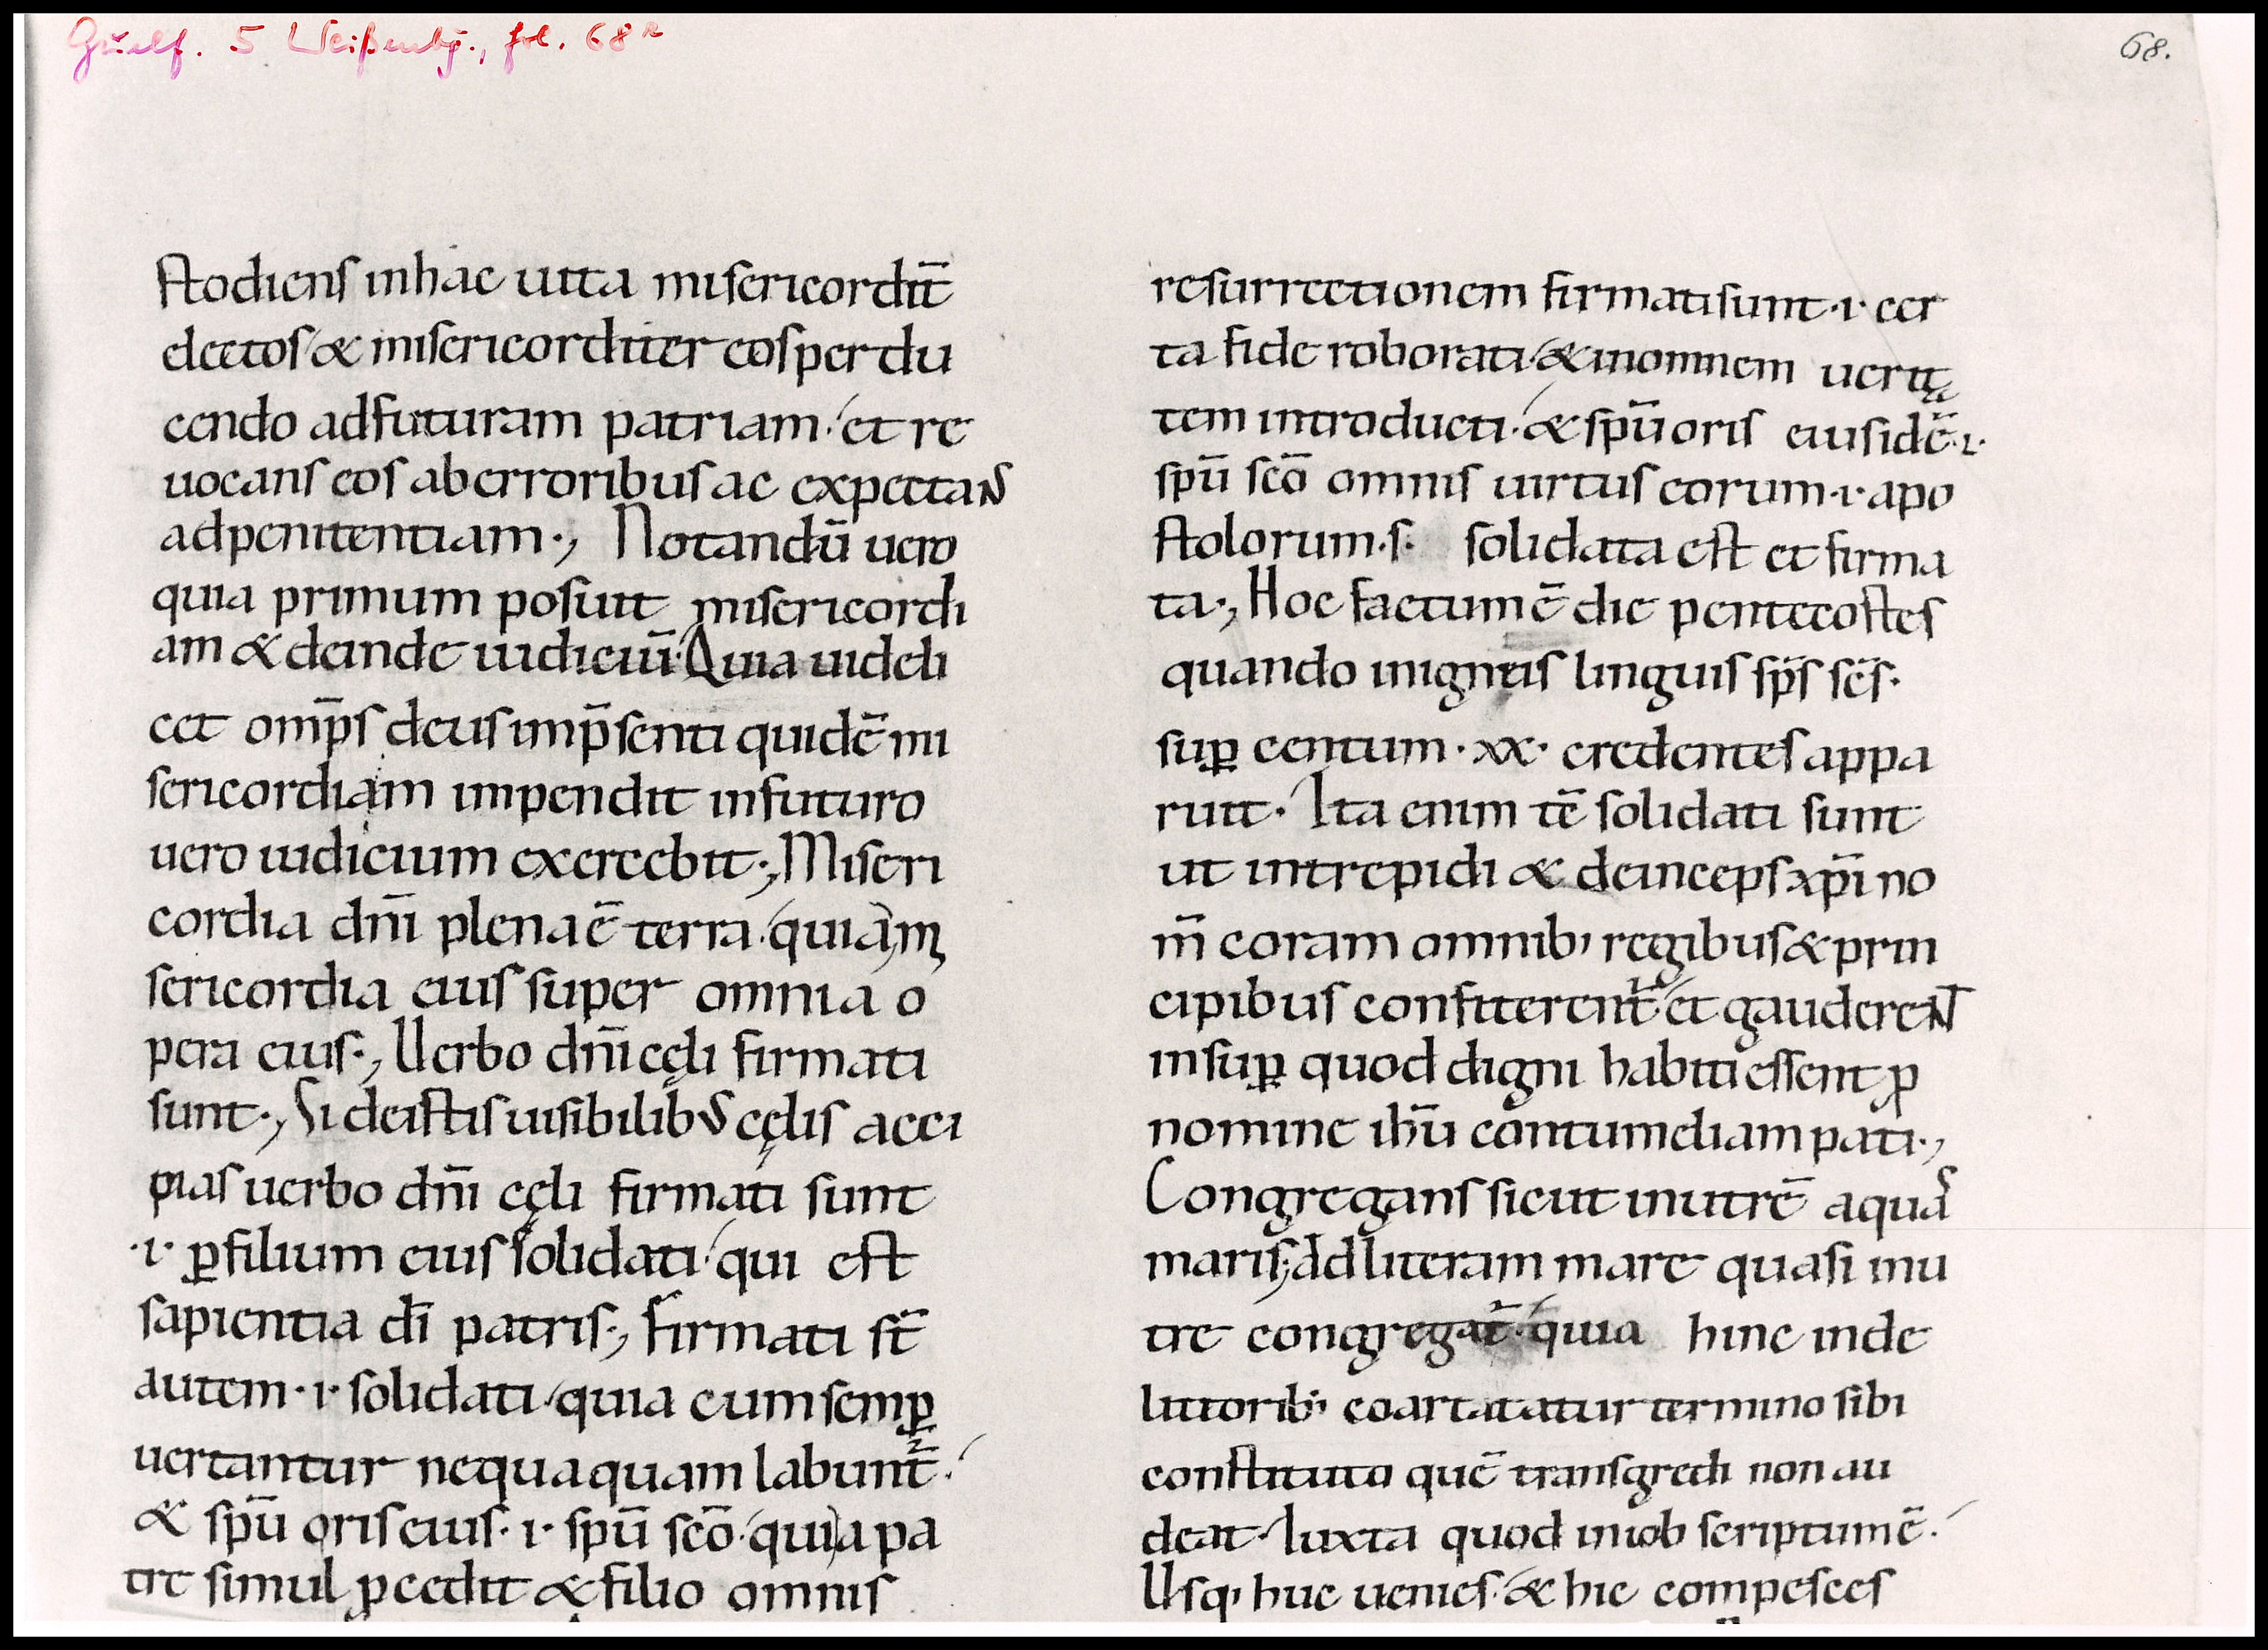 Guelf. 5 Weißenbg., fol. 68r
68.
stodiens inhac uita misericordit̄
electos & misericorditer eos perdu
cendo adfuturam patriam· et re
uocans eos aberroribus ac expectans
adpenitentiam·, Notandū uero
quia primum posuit misericordi
am & deinde iudiciū· Quia uideli
cet omp̄s deus imp̄senti quidē mi
sericordiam impendit infuturo
uero iudicium exercebit·, Miseri
cordia dn̄i plena ē terra· quia mi
sericordia eius super omnia o
pera eius·, Uerbo dn̄i cęli firmati
sunt·, Si deistis uisibilibus cęlis acci
pias uerbo dn̄i cęli firmati sunt
·i· ꝑfilium eius solidati· qui est
sapientia dī patris·, Firmati st̄
autem ·i· solidati· quia cum semꝑ
uertantur nequaquam labunt̄·
& spū oris eius· ·i· spū scō· quia pa
tre simul ꝓcedit & filio omnis
resurrectionem firmati sunt ·i· cer
ta fide roborati· & inomnem uerita
tem introducti· & spū oris eius idē ·i·
spū scō omnis uirtus eorum ·i· apo
stolorum ·s· solidata est et firma
ta·, Hoc factum ē die pentecostes
quando inigneis linguis sp̄s sc̄s·
suꝑ centum · xx · credentes appa
ruit· Ita enim tē solidati sunt
ut intrepidi & deinceps xp̄i no
m̄ coram omnib; regibus & prin
cipibus confiterent̄· et gauderent
insuꝑ quod digni habiti essent ꝓ
nomine ihū contumeliam pati·,
Congregans sicut inutrē aquas
maris·, Ad literam mare quasi inu
tre congregat̄· quia hinc inde
littorib; coartatatur termino sibi
constituto quē transgredi non au
deat· Iuxta quod iniob scriptum ē·
Usq; huc uenies· & hic compesces